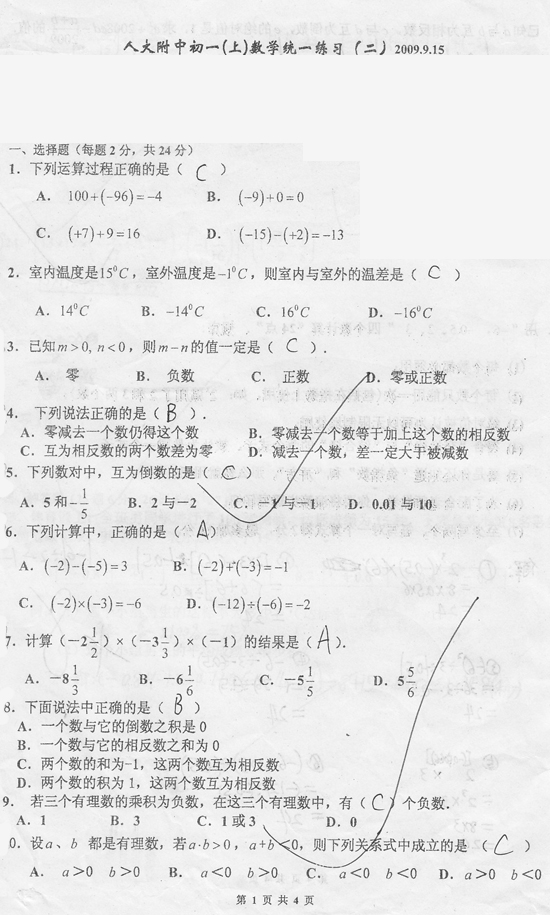 人大附中初一(上)数学统一练习(二) 2009.9.15
一、选择题（每题2分，共24分）
1．下列运算过程正确的是（ C ）
A． 100+(−96)=−4 B． (−9)+0=0
C． (+7)+9=16 D． (−15)−(+2)=−13
2．室内温度是15⁰C，室外温度是−1⁰C，则室内与室外的温差是（ C ）
A．14⁰C B．−14⁰C C．16⁰C D．−16⁰C
3．已知m>0, n<0，则m−n的值一定是（ C ）．
A． 零 B． 负数 C． 正数 D．零或正数
4． 下列说法正确的是（ B ）．
A．零减去一个数仍得这个数 B．零减去一个数等于加上这个数的相反数
C．互为相反数的两个数差为零 D．减去一个数，差一定大于被减数
5．下列数对中，互为倒数的是（ C ）
A．5和−1/5 B．2与−2 C．−1与−1 D．0.01与10
6．下列计算中，正确的是（ A ）
A．(−2)−(−5)=3 B．(−2)+(−3)=−1
C． (−2)×(−3)=−6 D．(−12)÷(−6)=−2
7．计算（−2 1/2）×（−3 1/3）×（−1）的结果是（ A ）．
A．−8 1/3 B．−6 1/6 C．−5 1/5 D．5 5/6
8．下面说法中正确的是（ B ）
A．一个数与它的倒数之积是0
B．一个数与它的相反数之和为0
C．两个数的和为−1，这两个数互为相反数
D．两个数的积为1，这两个数互为相反数
9． 若三个有理数的乘积为负数，在这三个有理数中，有（ C ）个负数．
A．1 B．3 C．1或3 D．0
0．设a、b 都是有理数，若a·b>0，a+b<0，则下列关系式中成立的是（ C ）
A． a>0 b>0 B． a<0 b>0 C． a<0 b<0 D．a>0 b<0
第 1 页 共 4 页